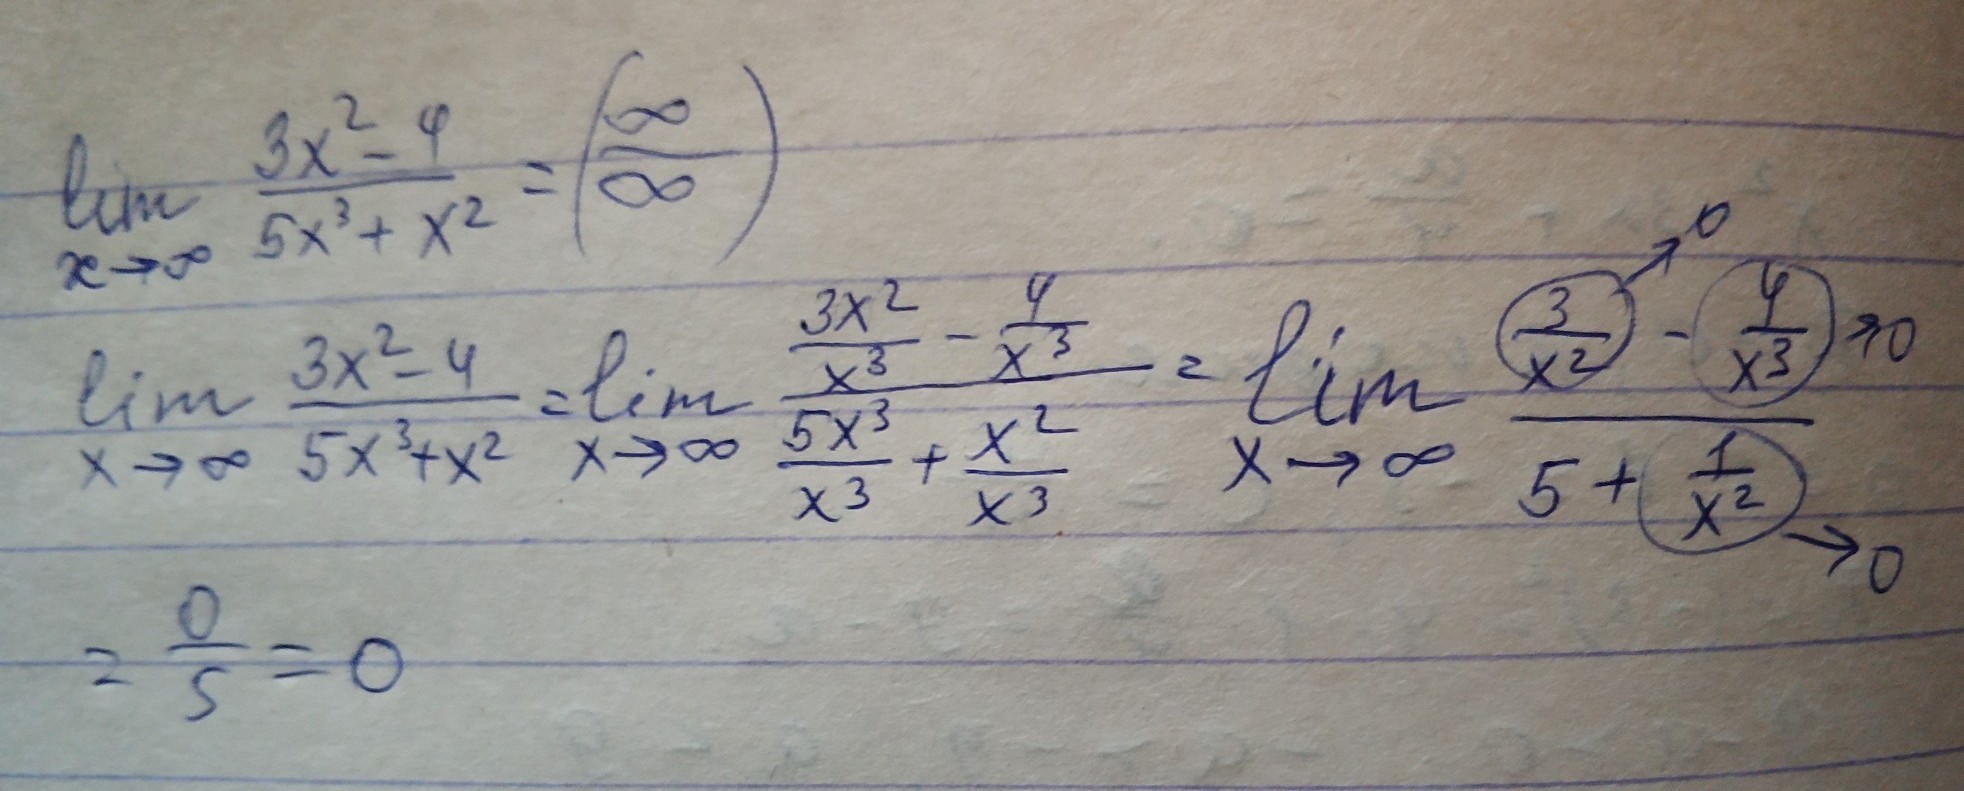 lim x→∞ (3x² - 4)/(5x³ + x²) = (∞/∞)
lim x→∞ (3x² - 4)/(5x³ + x²) = lim x→∞ (3x²/x³ - 4/x³)/(5x³/x³ + x²/x³) = lim x→∞ (3/x² →0 - 4/x³ →0)/(5 + 1/x² →0)
= 0/5 = 0